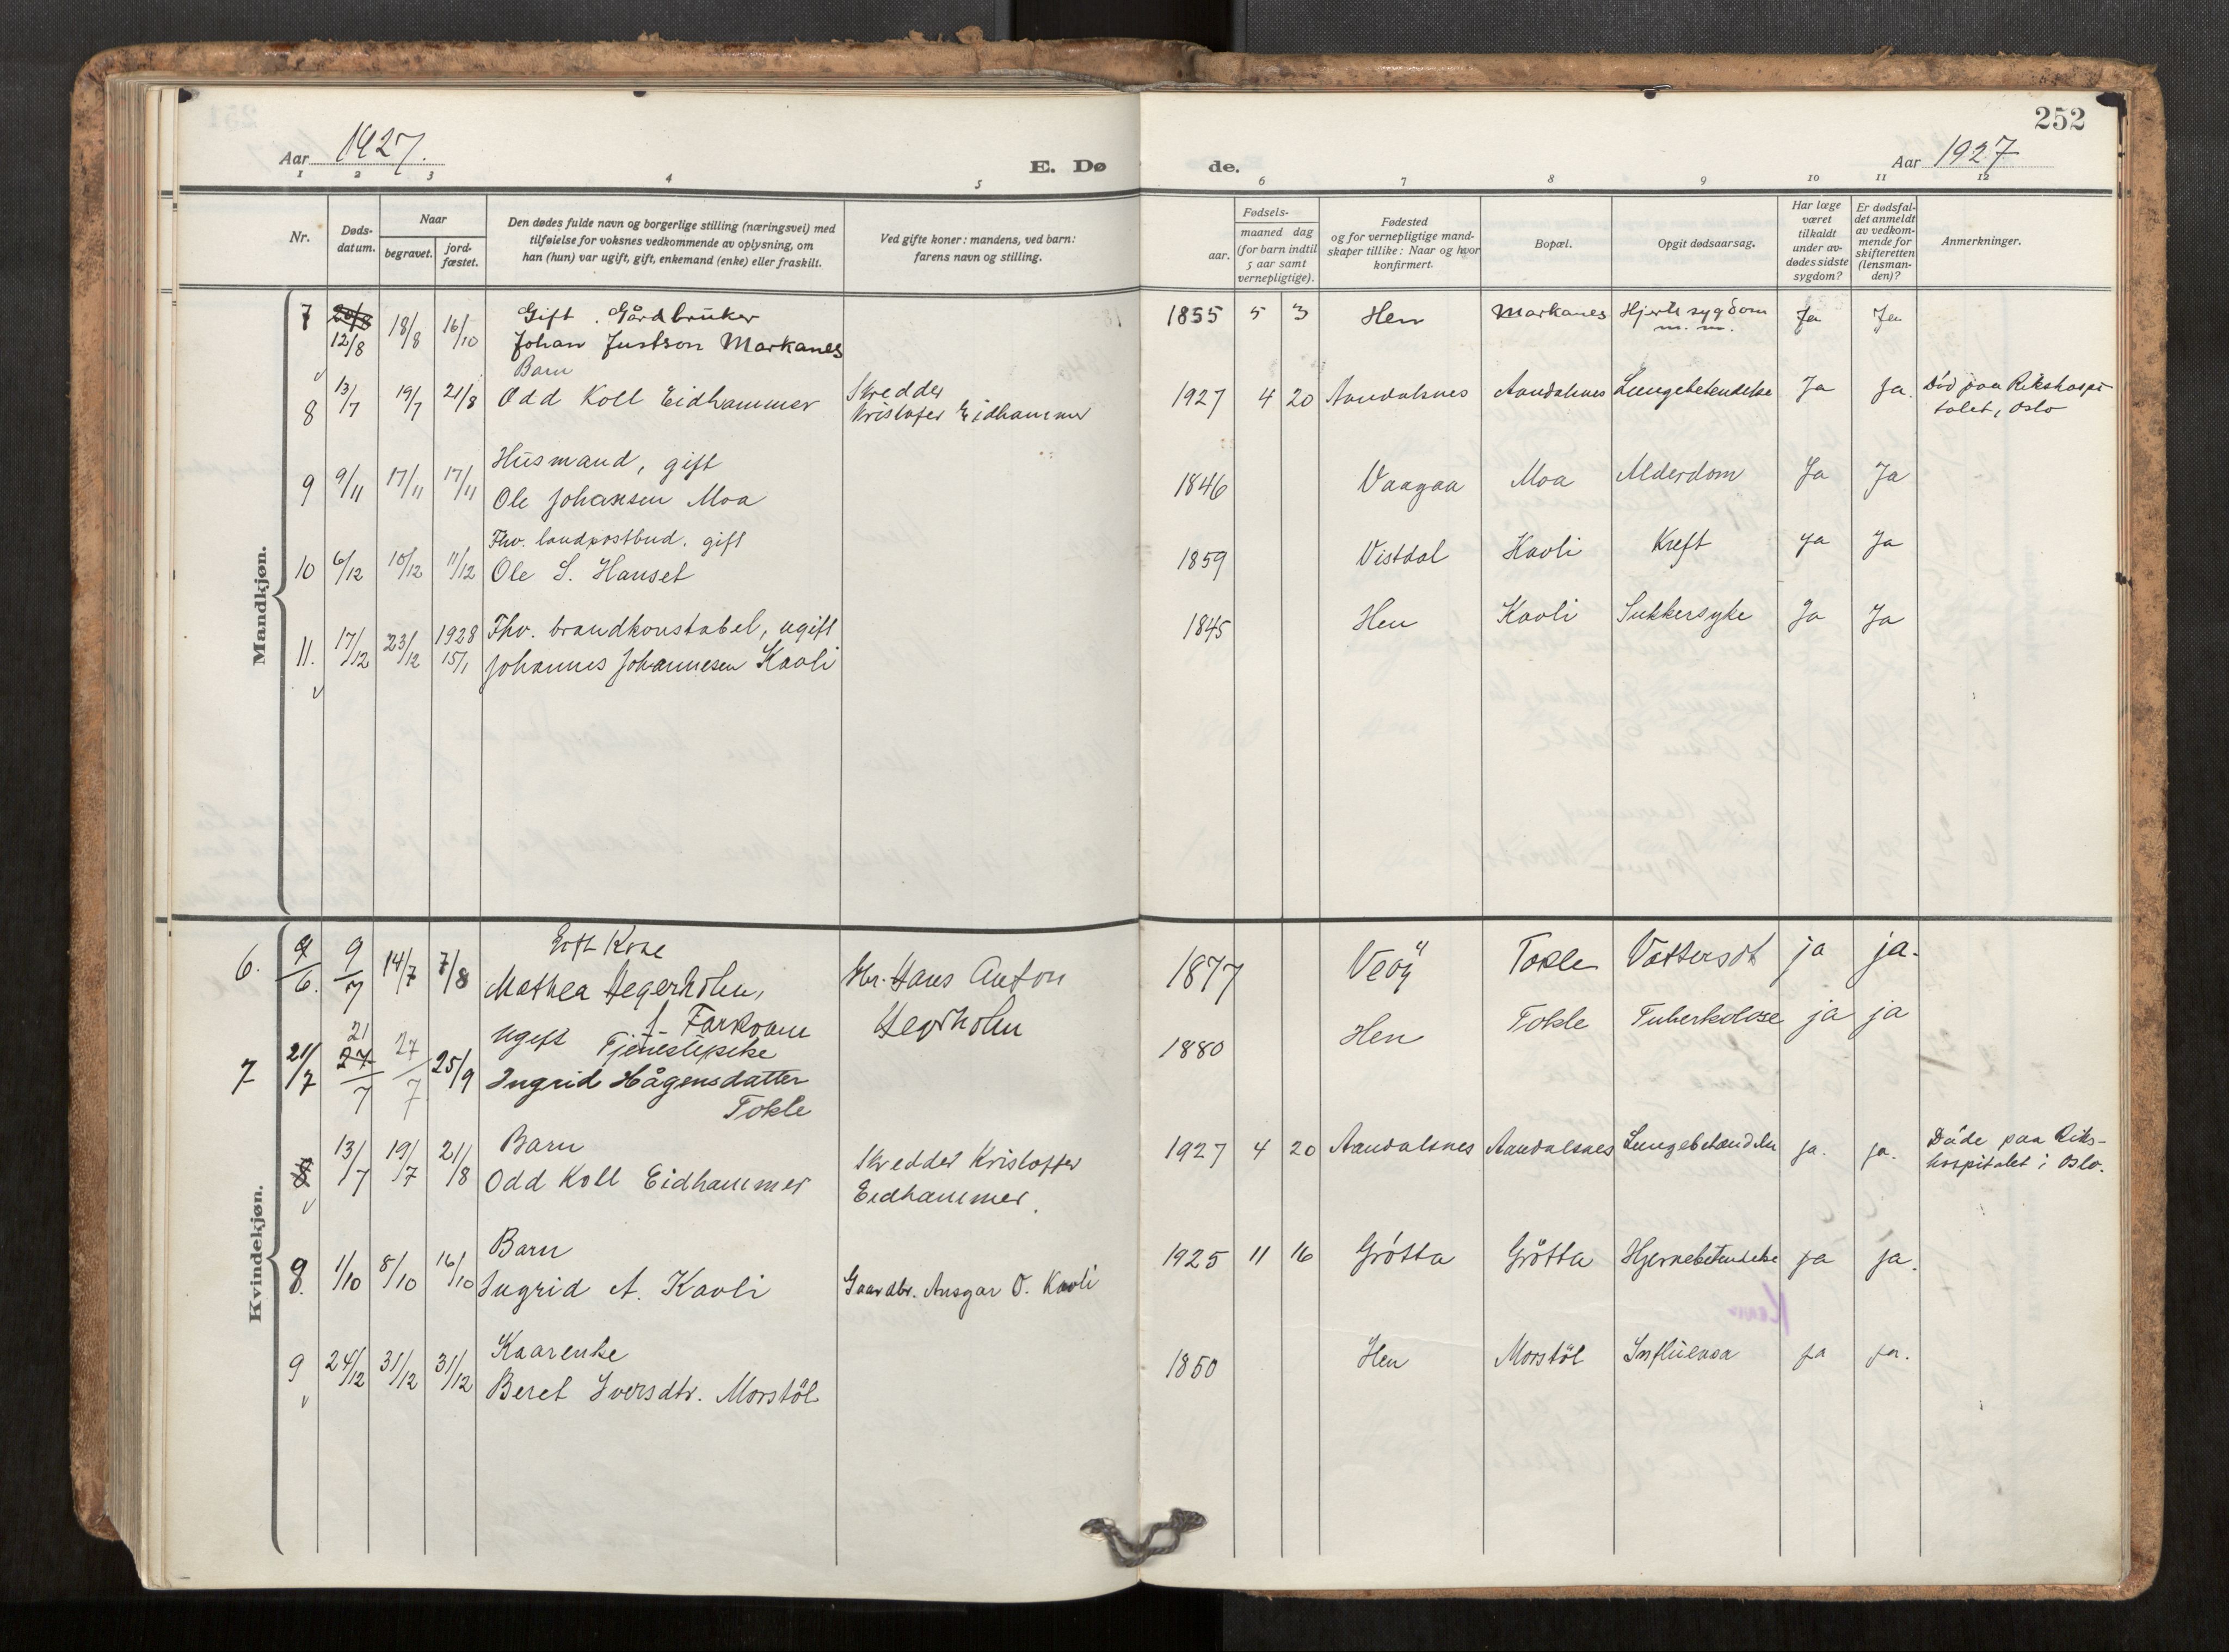 252
Aar 1927.
E. Dø
de.
Aar 1927
1 2 3 4 5 6 7 8 9 10 11 12
Nr.
Døds-
datum.
Naar
begravet.
jord-
fæstet.
Den dødes fulde navn og borgerlige stilling (næringsvei) med
tilføielse for voksnes vedkommende av oplysning, om
han (hun) var ugift, gift, enkemand (enke) eller fraskilt.
Ved gifte koner: mandens, ved barn:
farens navn og stilling.
Fødsels-
aar.
maaned dag
(for barn indtil
5 aar samt
vernepligtige).
Fødested
og for vernepligtige mand-
skaper tillike: Naar og hvor
konfirmert.
Bopæl.
Opgit dødsaarsag.
Har læge
været
tilkaldt
under av-
dødes sidste
sygdom?
Er dødsfal-
det anmeldt
av vedkom-
mende for
skifteretten
(lensman-
den)?
Anmerkninger.
Mandkjøn.
Gift. Gårdbruker
7 12/8 18/8 16/10 Johan Justson Markanes 1855 5 3 Hen Markanes Hjertesygdom m. m. Ja Ja
Barn
8 13/7 19/7 21/8 Odd Koll Eidhammer Skredder Kristofer Eidhammer 1927 4 20 Aandalsnes Aandalsnes Lungebetendelse Ja Ja. Död paa Rikshospi-
talet, Oslo
Husmand, gift
9 9/11 17/11 17/11 Ole Johansen Moa 1846 Vaagaa Moa Alderdom Ja Ja
Fhv. landpostbud. gift
10 6/12 10/12 11/12 Ole S. Hanset 1859 Vistdal Kavli Kreft Ja Ja
1928 Fhv. brandkonstabel, ugift
11. 17/12 23/12 15/1 Johannes Johannesen Kavli 1845 Hen Kavli Sukkersyke Ja Ja
Kvindekjøn.
Gift Kone
6. 9/7 14/7 7/8 Mathea Hegerholm, Hr. Hans Anton 1877 Veöy Tokle Vattersot ja ja.
f. Farkvam
ugift Tjenestepike
7 21/7 27/7 25/9 Ingrid Hågensdatter 1880 Hen Tokle Tuberkolose ja ja
Tokle
Barn
8 13/7 19/7 21/8 Odd Koll Eidhammer Skredder Kristoffer Eidhammer. 1927 4 20 Aandalsnes Aandalsnes Lungebetændelse ja. ja. Döde paa Riks-
hospitalet i Oslo.
Barn
8. 1/10 8/10 16/10 Ingrid A. Kavli Gaardbr. Ansgar O. Kavli 1925 11 16 Grötta Grötta Hjernebetendelse ja ja.
Kaarenke
9 24/12 31/12 31/12 Beret Iversdtr. Morstöl 1850 Hen Morstöl Influensa ja ja.